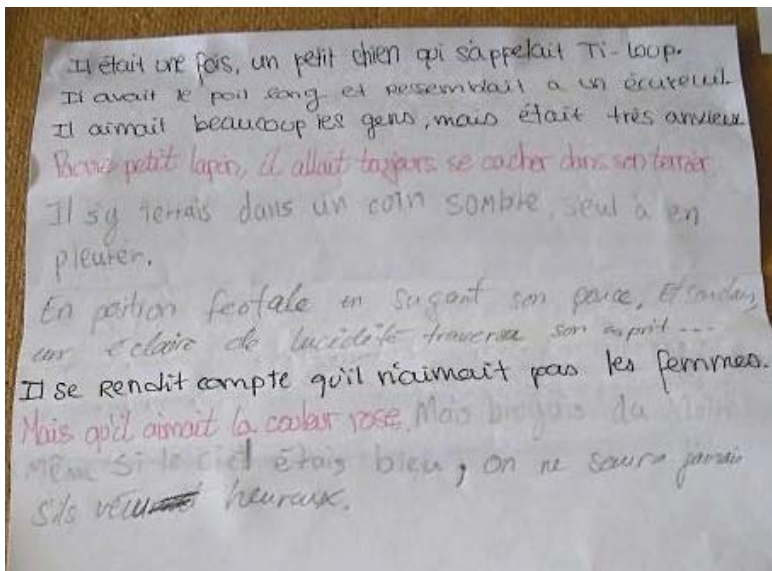 Il était une fois, un petit chien qui s'appelait Ti-loup.
Il avait le poil long et ressemblait a un écureuil.
Il aimait beaucoup les gens, mais était très anxieux
Pauvre petit lapin, il allait toujours se cacher dans son terrier
Il s'y terrais dans un coin sombre, seul à en
pleurer.
En position feotale en suçant son pouce, Et soudain,
un éclaire de lucidité traversa son esprit...
Il se rendit compte qu'il n'aimait pas les femmes.
Mais qu'il aimait la couleur rose. Mais du
Même si le ciel étais bleu, on ne saura jamais
s'ils heureux.